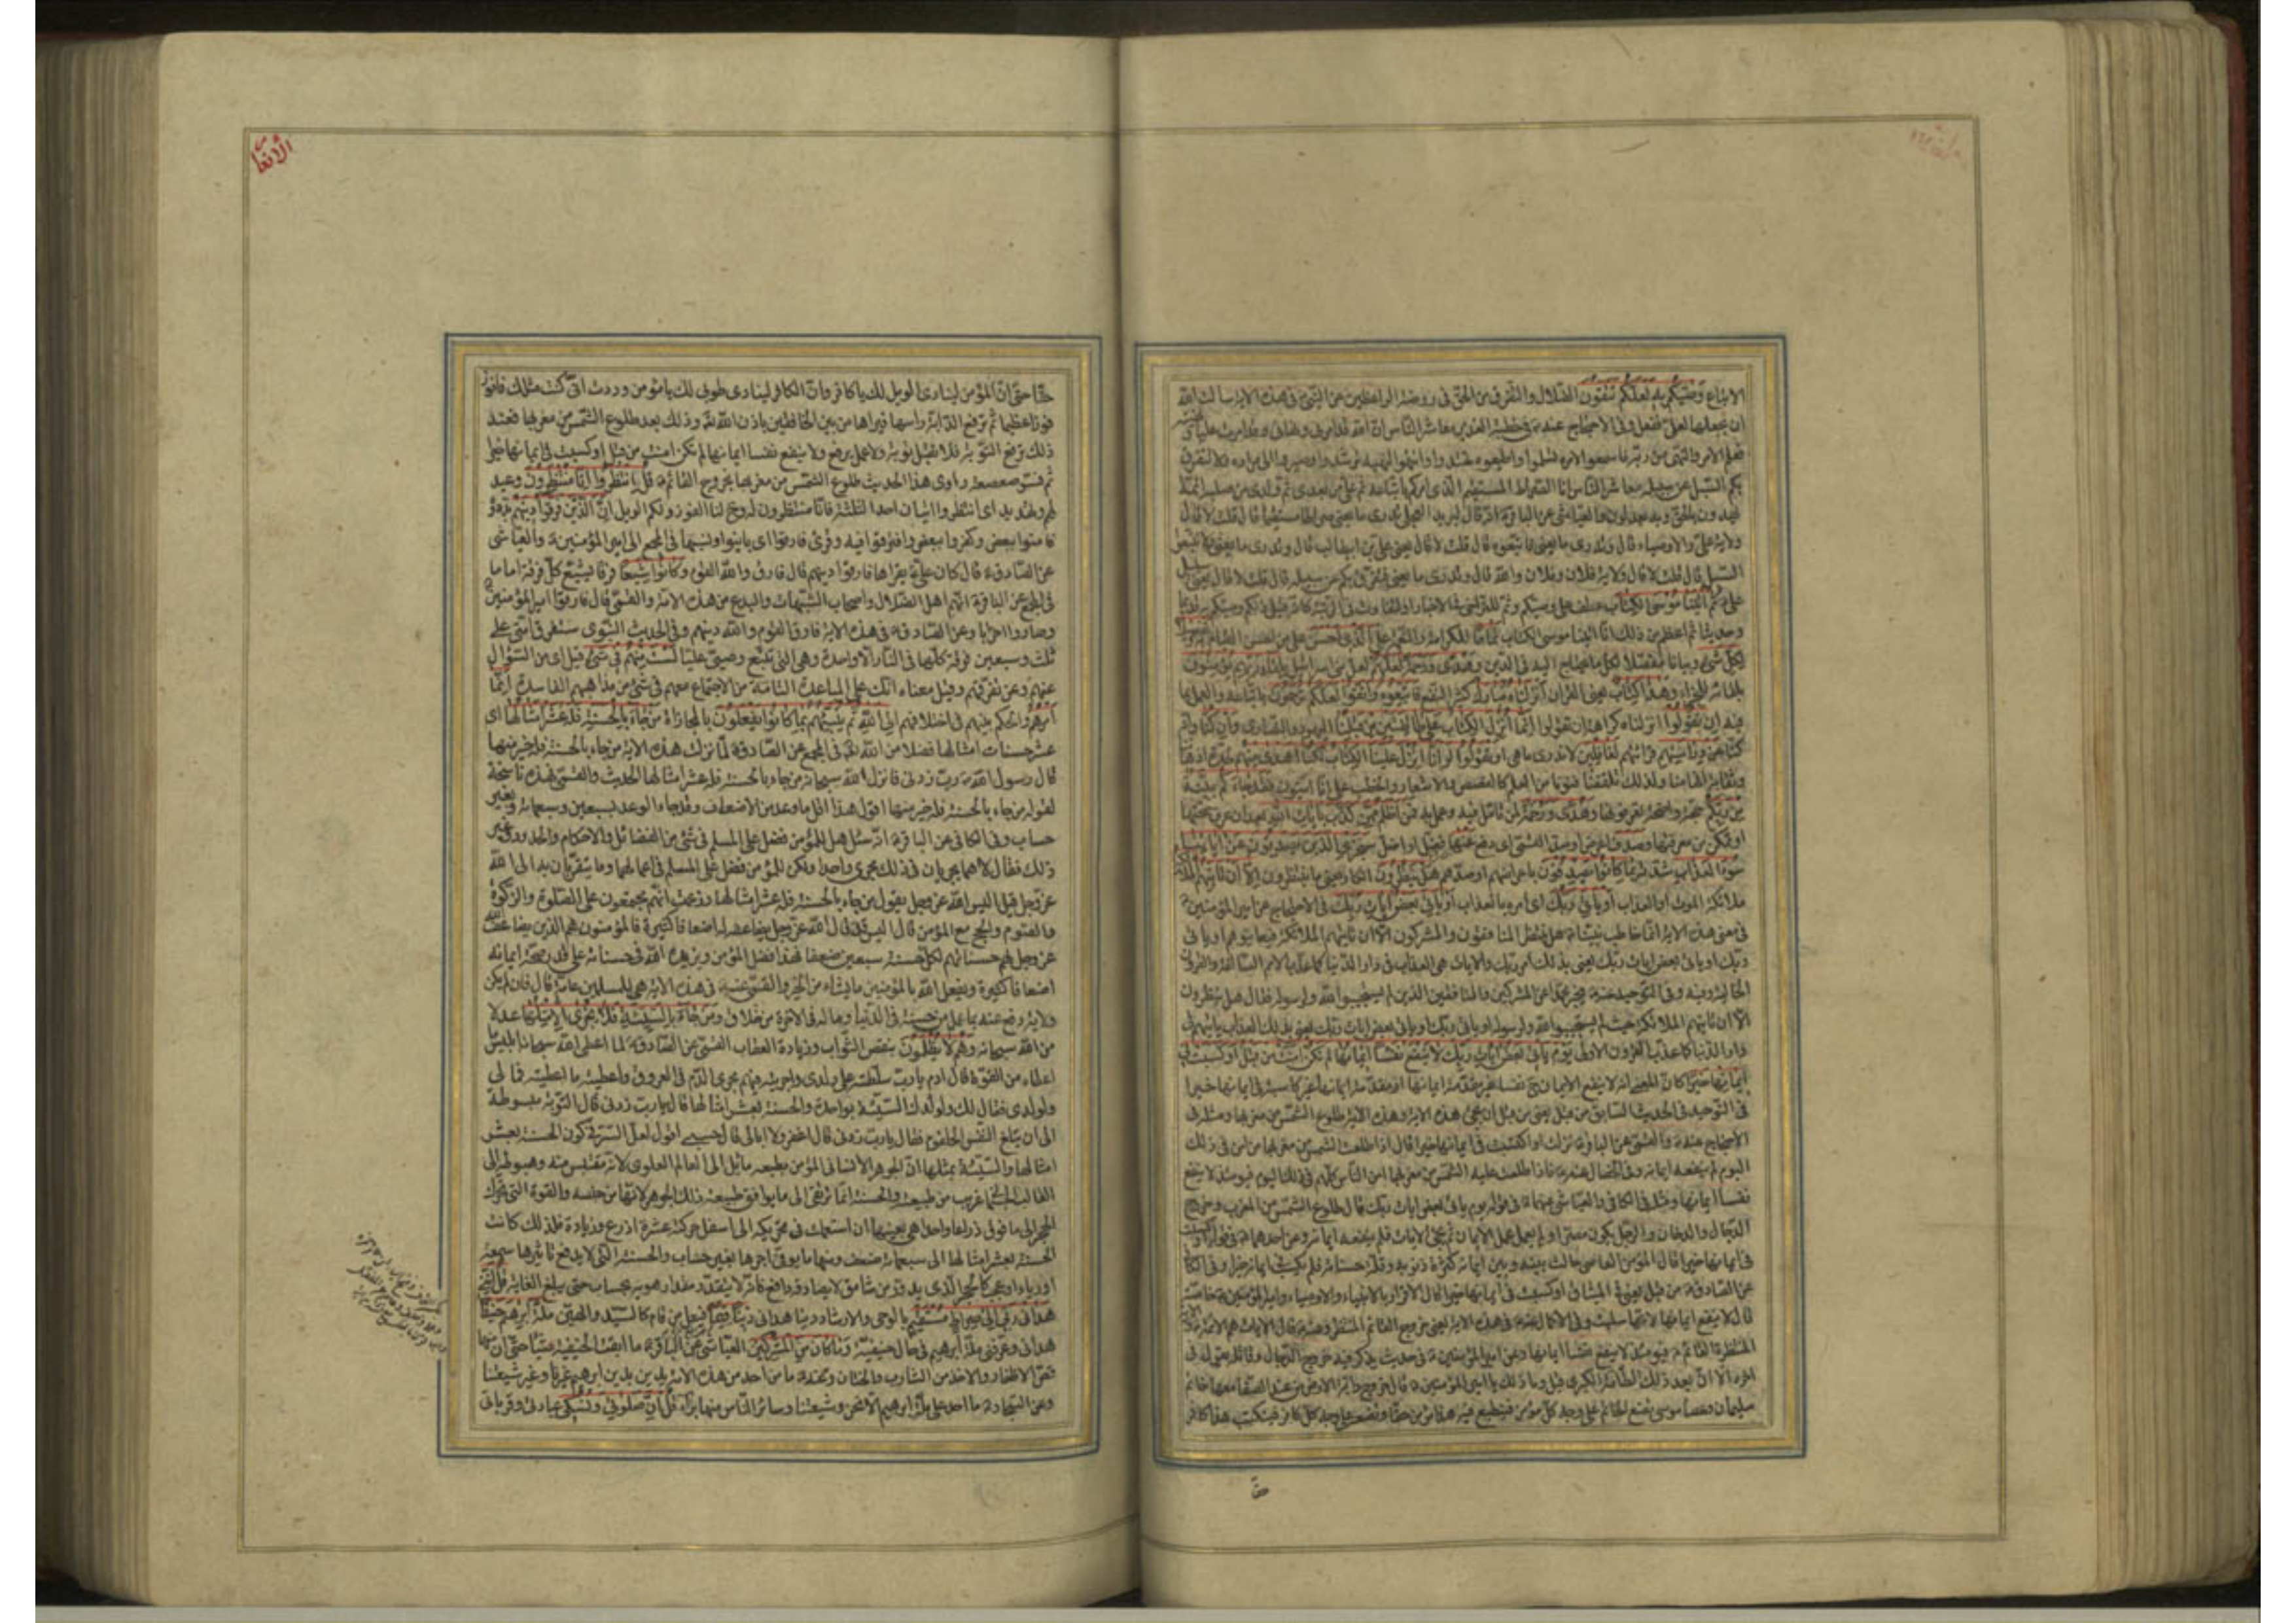 الاتباع وصيكم به لعلكم تتقون الضلال والتفرق عن الحق فى روضة الواعظين عن النبى فى هذه الاية سالت الله
ان يجعلها لعلى ففعل وفى الاحتجاج عنه فى خطبة الغدير معاشر الناس ان الله قد امرنى ونهانى وقد امرت عليا
فعلم الامر والنهى من ربه فاسمعوا لامره تسلموا واطيعوه تهتدوا وانتهوا لنهيه ترشدوا وصيروا الى مراده ولا تتفرق
بكم السبل عن سبيله معاشر الناس انا الصراط المستقيم الذى امركم باتباعه ثم على من بعدى ثم ولدى من صلبه ائمة
يهدون بالحق وبه يعدلون والعياشى عن الباقر انه قال لبريد العجلى تدرى ما يعنى صراطى مستقيما قال قلت لا قال
ولاية على والاوصياء قال وتدرى ما يعنى فاتبعوه قال قلت لا قال يعنى على بن ابيطالب قال وتدرى ما يعنى ولا تتبعوا
السبل قال قلت لا قال ولاية فلان وفلان والله قال وتدرى ما يعنى فتفرق بكم عن سبيله قال قلت لا قال يعنى سبيل
على ثم اتينا موسى الكتاب عطف على وصيكم
لكل شئ وبيانا مفصلا لكل ما يحتاج اليه فى الدين وهدى ورحمة لعلهم لعل بنى اسرائيل بلقاء ربهم يؤمنون
بلقائه للجزاء وهذا كتاب يعنى القران انزلناه مبارك كثير النفع فاتبعوه واتقوا لعلكم ترحمون باتباعه والعمل بما
فيه ان تقولوا انزلناه كراهة ان تقولوا انما انزل الكتاب على طائفتين من قبلنا اليهود والنصارى وان كنا وانه
كنا عن دراستهم قرائتهم لغافلين لا ندرى ما هى او تقولوا لو انا انزل علينا الكتاب لكنا اهدى منهم
من ربكم حجة واضحة تعرفونها وهدى ورحمة لمن تامل فيه وعمل به فمن اظلم ممن كذب بايات الله بعد ان عرف صحتها
سوء العذاب شدته بما كانوا يصدفون باعراضهم او صدهم هل ينظرون انكار يعنى ما ينتظرون الا ان تاتيهم الملائكة
ملائكة الموت او العذاب او ياتى ربك اى امره بالعذاب او ياتى بعض ايات ربك فى الاحتجاج عن امير المؤمنين
فى معنى هذه الاية انما خاطب نبينا هل ينتظر المنافقون والمشركون الا ان تاتيهم الملائكة فيعاينوهم او ياتى
ربك او ياتى بعض ايات ربك يعنى بذلك امر ربك والايات هى العذاب فى دار الدنيا كما عذب الامم السالفة والقرون
الا ان تاتيهم الملائكة حيث لم يستجيبوا لله ولرسوله او ياتى ربك او ياتى بعض ايات ربك يعنى بذلك العذاب ياتيهم فى
دار الدنيا كما عذب القرون الاولى يوم ياتى بعض ايات ربك لا ينفع نفسا ايمانها لم تكن امنت من قبل او كسبت فى
فى التوحيد فى الحديث السابق من قبل يعنى من قبل ان تجئ هذه الاية وهذه الاية طلوع الشمس من مغربها ومثله فى
اليوم لم ينفعه ايمانه وفى الخصال عنه فاذا طلعت عليه الشمس من مغربها امن الناس كلهم فى ذلك اليوم فيومئذ لا ينفع
نفسا ايمانها ومثله فى الكافى والعياشى عنهما فى قوله يوم ياتى بعض ايات ربك قال طلوع الشمس من المغرب وخروج
الدجال والدخان والرجل يكون مصرا ولم يعمل عمل الايمان ثم تجئ الايات فلم ينفعه ايمانه وعن احدهما فى قوله او كسبت
فى ايمانها خيرا قال المؤمن العاصى حالت بينه وبين ايمانه كثرة ذنوبه وقلة حسناته فلم يكسب فى ايمانه خيرا وفى الكافى
عن الصادق من قبل يعنى فى الميثاق او كسبت فى ايمانها خيرا قال الاقرار بالانبياء والاوصياء وامير المؤمنين خاصة
قال لا ينفع ايمانها لانها سلبت وفى الاكمال عنه فى هذه الاية يعنى خروج القائم المنتظر وعنه قال الايات هم الائمة
المنتظرة القائم فيومئذ لا ينفع نفسا ايمانها وعن امير المؤمنين فى حديث يذكر فيه خروج الدجال وقاتله يقول فى
اخره الا ان بعد ذلك الطامة الكبرى قيل وما ذلك يا امير المؤمنين قال خروج دابة الارض من عند الصفا معها خاتم
سليمان وعصا موسى تضع الخاتم على وجه كل مؤمن فينطبع فيه هذا مؤمن حقا وتضعه على وجه كل كافر فيكتب هذا كافر
حقا
الانعام
حقا حتى ان المؤمن لينادى الويل لك يا كافر وان الكافر لينادى طوبى لك يا مؤمن وددت انى كنت مثلك فافوز
فوزا عظيما ثم ترفع الدابة راسها فيراها من بين الخافقين باذن الله وذلك بعد طلوع الشمس من مغربها فعند
ذلك ترفع التوبة فلا تقبل توبة ولا عمل يرفع ولا ينفع نفسا ايمانها لم تكن امنت من قبل او كسبت فى ايمانها خيرا
ثم فسر صعصعة راوى هذا الحديث طلوع الشمس من مغربها بخروج القائم قل انتظروا انا منتظرون وعيد
لهم وتهديد اى انتظروا اتيان احد الثلثة فانا منتظرون له وح لنا الفوز ولكم الويل ان الذين فرقوا دينهم بددوه
فامنوا ببعض وكفروا ببعض وافترقوا فيه وقرئ فارقوا اى باينوا ونسبها فى المجمع الى امير المؤمنين والعياشى
عن الصادق قال كان على يقراها فارقوا دينهم قال فارق والله القوم وكانوا شيعا فرقا يشيع كل فرقة اماما
فى المجمع عن الباقر انهم اهل الضلال واصحاب الشبهات والبدع من هذه الامة والقمى قال فارقوا امير المؤمنين
وصاروا احزابا وعن الصادق فى هذه الاية فارق القوم والله دينهم وفى الحديث النبوى ستفرق امتى على
ثلث وسبعين فرقة كلها فى النار الا واحدة وهى التى تتبع وصيى عليا لست منهم فى شئ قيل اى من السؤال
عنهم وعن تفرقهم وقيل معناه انك على المباعدة التامة من الاجتماع معهم فى شئ من مذاهبهم الفاسدة انما
امرهم والحكم بينهم فى اختلافهم الى الله ثم ينبئهم بما كانوا يفعلون بالمجازاة من جاء بالحسنة فله عشر امثالها اى
عشر حسنات امثالها فضلا من الله فى المجمع عن الصادق لما نزلت هذه الاية من جاء بالحسنة فله خير منها
قال رسول الله رب زدنى فانزل الله سبحانه من جاء بالحسنة فله عشر امثالها الحديث والقمى هذه ناسخة
لقوله من جاء بالحسنة فله خير منها اقول هذا اقل ما وعد من الاضعاف وقد جاء الوعد بسبعين وسبعمائة وبغير
حساب وفى الكافى عن الباقر انه سئل هل للمؤمن فضل على المسلم فى شئ من الفضائل والاحكام والحدود وغير
ذلك فقال لا هما يجريان فى ذلك مجرى واحدا ولكن للمؤمن فضل على المسلم فى اعمالهما وما يتقربان به الى الله
عز وجل قيل اليس الله عز وجل يقول من جاء بالحسنة فله عشر امثالها وزعمت انهم مجتمعون على الصلوة والزكوة
والصوم والحج مع المؤمن قال اليس قد قال الله عز وجل يضاعفه له اضعافا كثيرة فالمؤمنون هم الذين يضاعف الله
عز وجل لهم حسناتهم لكل حسنة سبعين ضعفا فهذا فضل المؤمن ويزيده الله فى حسناته على قدر صحة ايمانه
اضعافا كثيرة ويفعل الله بالمؤمنين ما يشاء من الخير والقمى عنه فى هذه الاية هى للمسلمين عامة قال فان لم يكن
ولاية دفع عنه بما عمل من حسنة فى الدنيا وما له فى الاخرة من خلاق ومن جاء بالسيئة فلا يجزى الا مثلها عدلا
من الله سبحانه وهم لا يظلمون بنقص الثواب وزيادة العقاب القمى عن الصادق لما اعطى الله سبحانه ابليس
اعطاه من القوة قال ادم يا رب سلطته على ولدى واجريته فيهم مجرى الدم فى العروق واعطيته ما اعطيته فما لى
ولولدى فقال لك ولولدك السيئة بواحدة والحسنة بعشر امثالها قال يا رب زدنى قال التوبة مبسوطة
الى ان يبلغ النفس الحلقوم فقال يا رب زدنى قال اغفر ولا ابالى قال حسبى اقول لعل السر فى كون الحسنة بعشر
امثالها والسيئة بمثلها ان الجوهر الانسانى المؤمن بطبعه مائل الى العالم العلوى لانه مقتبس منه وهبوطه الى
القالب الجسمانى غريب من طبيعته والحسنة انما ترتقى الى ما يوافق طبيعة ذلك الجوهر لانها من جنسه والقوة التى تحرك
الحجر الى ما فوق ذراعا واحدا هى بعينها ان استعملت فى تحريكه الى اسفل حركته عشرة اذرع وزيادة فلذلك كانت
الحسنة بعشر امثالها الى سبعمائة ضعف ومنها ما يوفى اجرها بغير حساب والحسنة التى لا يدفع تاثيرها سمعة
او رياء او عجب كالحجر الذى يدور من شاهق لا يصادفه دافع فانه لا يتقدر مقدار هويه بحساب حتى يبلغ الغاية قل اننى
هدانى ربى الى صراط مستقيم بالوحى والارشاد دينا هدانى دينا قيما فيعل من قام كالسيد والهين ملة ابراهيم حنيفا
هدانى وعرفنى ملة ابراهيم فى حال حنيفيته وما كان من المشركين العياشى عن الباقر ما ابقت الحنيفية شيئا حتى ان منها
قص الاظفار والاخذ من الشارب والختان وعنه ما من احد من هذه الامة يدين بدين ابراهيم غيرنا وغير شيعتنا
وعن السجاد ما احد على ملة ابراهيم الا نحن وشيعتنا وسائر الناس منها براء قل ان صلوتى ونسكى عبادتى وقربانى